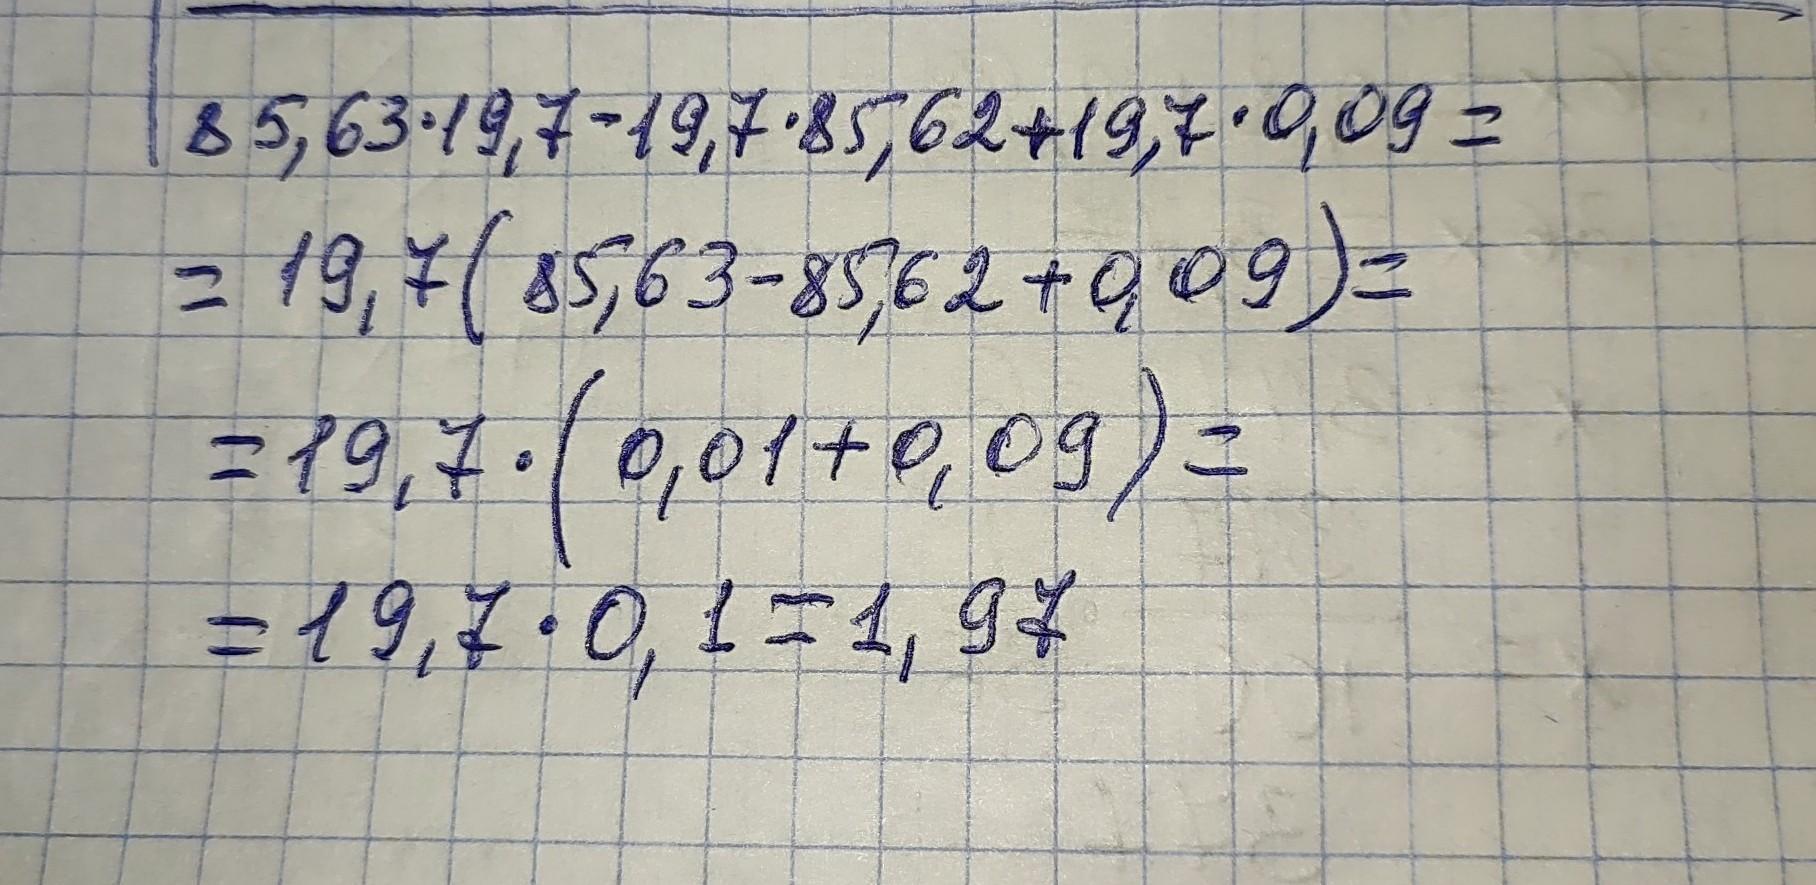 85,63·19,7-19,7·85,62+19,7·0,09=
=19,7(85,63-85,62+0,09)=
=19,7·(0,01+0,09)=
=19,7·0,1=1,97